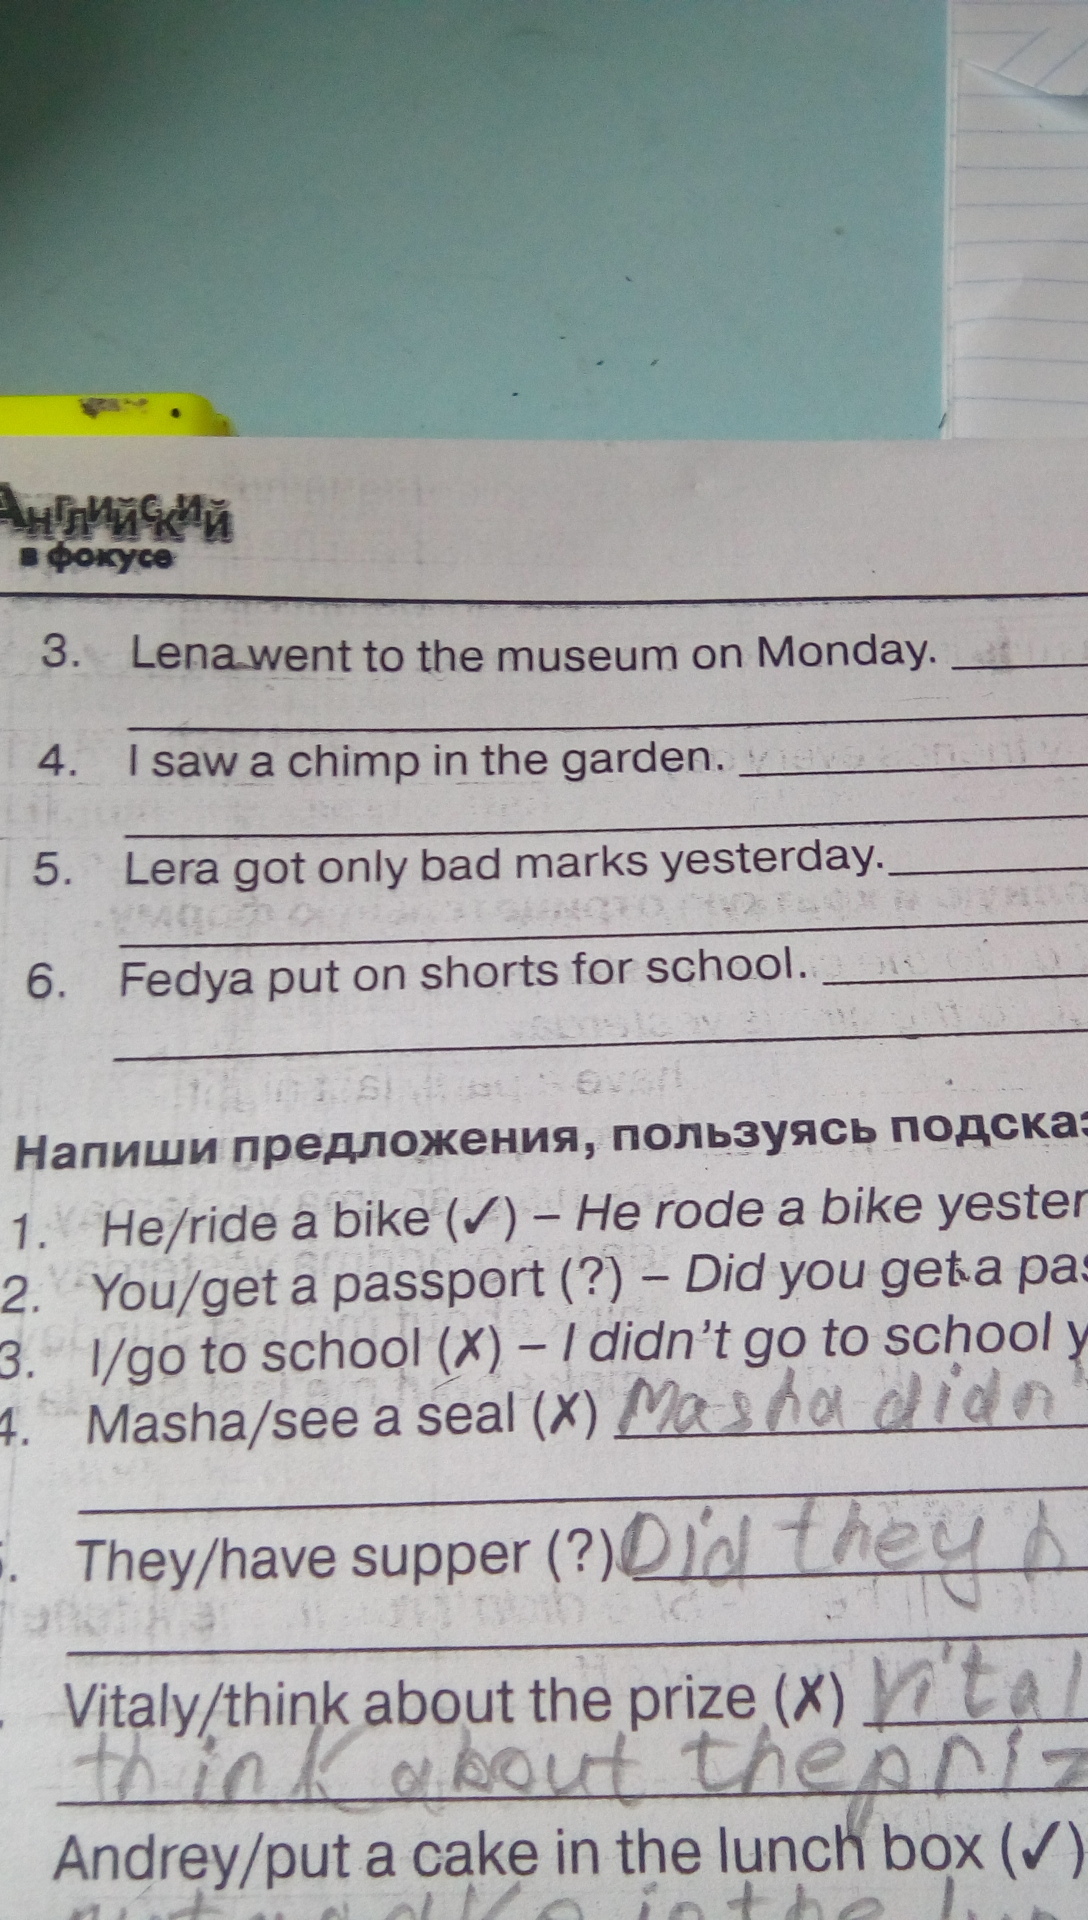 Английский
в фокусе
3. Lena went to the museum on Monday.
4. I saw a chimp in the garden.
5. Lera got only bad marks yesterday.
6. Fedya put on shorts for school.
Напиши предложения, пользуясь подсказ
1. He/ride a bike (✓) – He rode a bike yester
2. You/get a passport (?) – Did you get a pas
3. I/go to school (✗) – I didn't go to school y
4. Masha/see a seal (✗) Masha didn'
They/have supper (?) Did they h
Vitaly/think about the prize (✗) Vital
think about the priz
Andrey/put a cake in the lunch box (✓)
in the lun